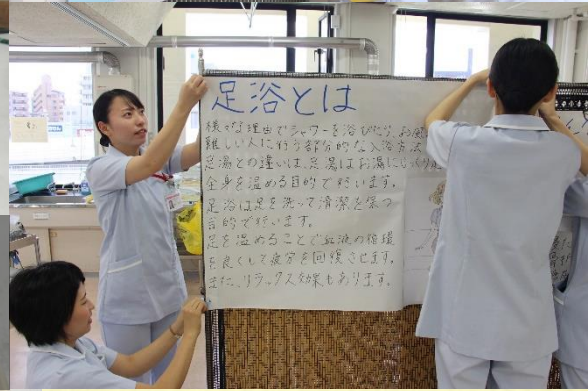 足浴とは
様々な理由でシャワーを浴びたり、お風
難しい人に行う部分的な入浴方法
足湯との違いは、足湯はお湯にじっくり
全身を温める目的で行います。
足浴は足を洗って清潔を保つ
目的で行います。
足を温めることで血液の循環
を良くして疲労を回復させます。
また、リラックス効果もあります。